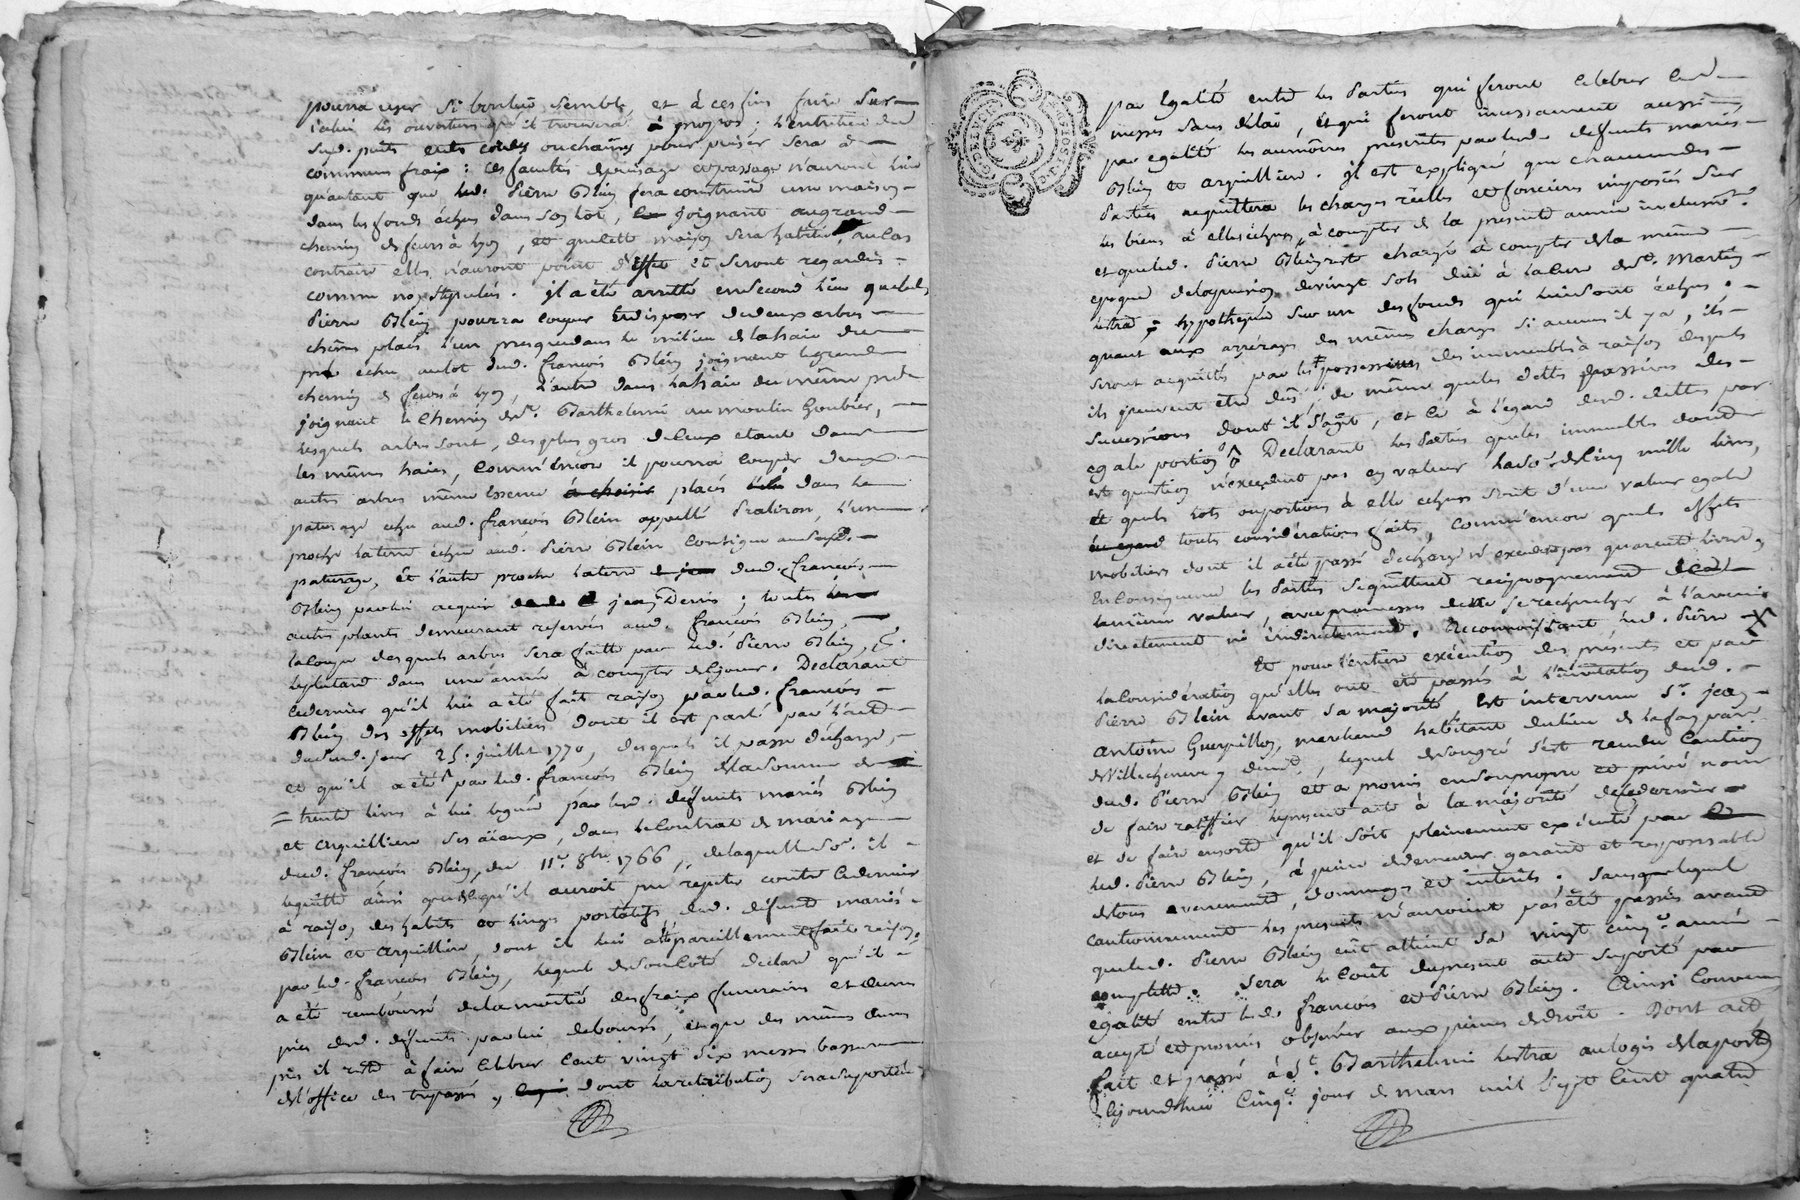 pourra user si bon lui semble, et à ces fins faire sur
icelui les ouvertures qu'il trouvera à propos; l'entretien du
sud. puits cordes ou chaines pour puiser sera à
communs frais: ces facultés de puisage et passage n'auront lieu
qu'autant que led. Pierre Blein fera construire une maison
dans les fonds échus dans son lot, joignant au grand
chemin de feurs à lyon, et que cette maison sera habitée, au cas
contraire elles n'auront point d'effet et seront regardées
comme non stipulées. il a été arretté en second lieu que led.
Pierre Blein pourra couper et disposer de deux arbres
chênes placés l'un presque dans le milieu de la haie du
pré échu au lot dud. françois Blein joignant le grand
chemin de feurs à lyon, l'autre dans la haie du même pré
joignant le chemin de St. Barthelemi au moulin Goubier,
lesquels arbres sont, des plus gros de ceux etant dans
les mêmes haies, comm'encore il pourra couper deux
autres arbres même essence placés dans le
paturage echu aud. françois Blein appellé Praliron, l'un
proche la terre échue aud. Pierre Blein contigue aud.
paturage, et l'autre proche la terre dud. françois
Blein par lui acquise jean Denis; tous les
autres plants demeurant reservés aud. françois Blein,
la coupe desquels arbres sera faitte par led. Pierre Blein,
le plus tard dans une année à compter de ce jour. Declarant
ce dernier qu'il lui a été fait raison par led. françois
Blein des effets mobiliers dont il est parlé par l'acte
dud. jour 25. juillet 1770, desquels il passe decharge,
et qu'il a été par led. françois Blein de la somme de
trente livres à lui leguée par les d. défunts mariés Blein
et arquillière ses aïeaux, dans le contrat de mariage
dud. françois Blein, du 11e. 8bre 1766, de laquelle so[mme] il
le quitte ainsi que de ce qu'il auroit pu repeter contre ce dernier
à raison des habits et linges portatifs desd. défunts mariés
Blein et arquillière, dont il lui a été pareillement fait raison
par led. françois Blein, lequel de son côté declare qu'il
a été remboursé de la moitié des fraix funeraires et œuvres
pies desd. défunts par lui déboursés, et que des mêmes œuvres
pies il reste à faire celebrer cent vingt six messes basses
de l'office des trepassés, dont la retribution sera suportée
par egalité entre les parties qui feront celebrer lesd.
messes sans délai, et qui feront incessament aussi
par egalité les aumônes prescrites par lesd. défunts mariés
Blein et arquillière. il est expliqué que chacune des
parties acquittera les charges réelles et foncières imposées sur
les biens à elles échus, à compter de la presente année inclusivement.
et que led. Pierre Blein reste chargé à compter de la même
epoque de la pension de vingt sols due à la cure de St. Martin
lestra, hypothequée sur un des fonds qui lui sont échus.
quant aux arrérages des mêmes charges si aucuns il y a, ils
seront acquittés par les possesseurs des immeubles à raison desquels
ils peuvent être dus, de même que les dettes passives des
successions dont il s'agit, et ce à l'egard desd. dettes par
egale portion. Declarant les Parties que les immeubles dont
est question n'excedent pas en valeur la so[mme] de cinq mille livres,
et que les lots ou portions à elle echus sont d'une valeur egale
toutes considérations faites, comm'encore que les effets
mobiliers dont il a été passé decharge n'excedent pas quarante livres,
en consequence les parties se quittent reciproquement
la même valeur, avec promesses de ne se rechercher à l'avenir
directement ni indirectement. Reconnoissant led. Pierre X
Et pour l'entiere exécution des presentes et par
la considération qu'elles ont été passées à l'invitation dud.
Pierre Blein avant sa majorité est intervenu Sr. jean
antoine Guerpillon, marchand habitant du lieu de la
Villechenève, lequel de son gré s'est rendu caution
dud. Pierre Blein et a promis en son propre et privé nom
de faire ratiffier le present acte à la majorité de ce dernier
et de faire ensorte qu'il soit pleinement exécuté par
led. Pierre Blein, à peine de demeurer garant et responssable
de tous evenements, dommages et interêts. sans par lequel
cautionnement les presentes n'auroient pas été passées avant
que led. Pierre Blein eût atteint sa vingt cinqe. année
complette. Sera le coût du present acte suporté par
égalité entre lesd. françois et Pierre Blein. Ainsi convenu
accepté et promis observer aux peines de droit. Dont acte
fait et passé à St. Barthelemi lestra au logis de la porte
le jourd'hui cinqe. jour de mars mil sept cent quatre